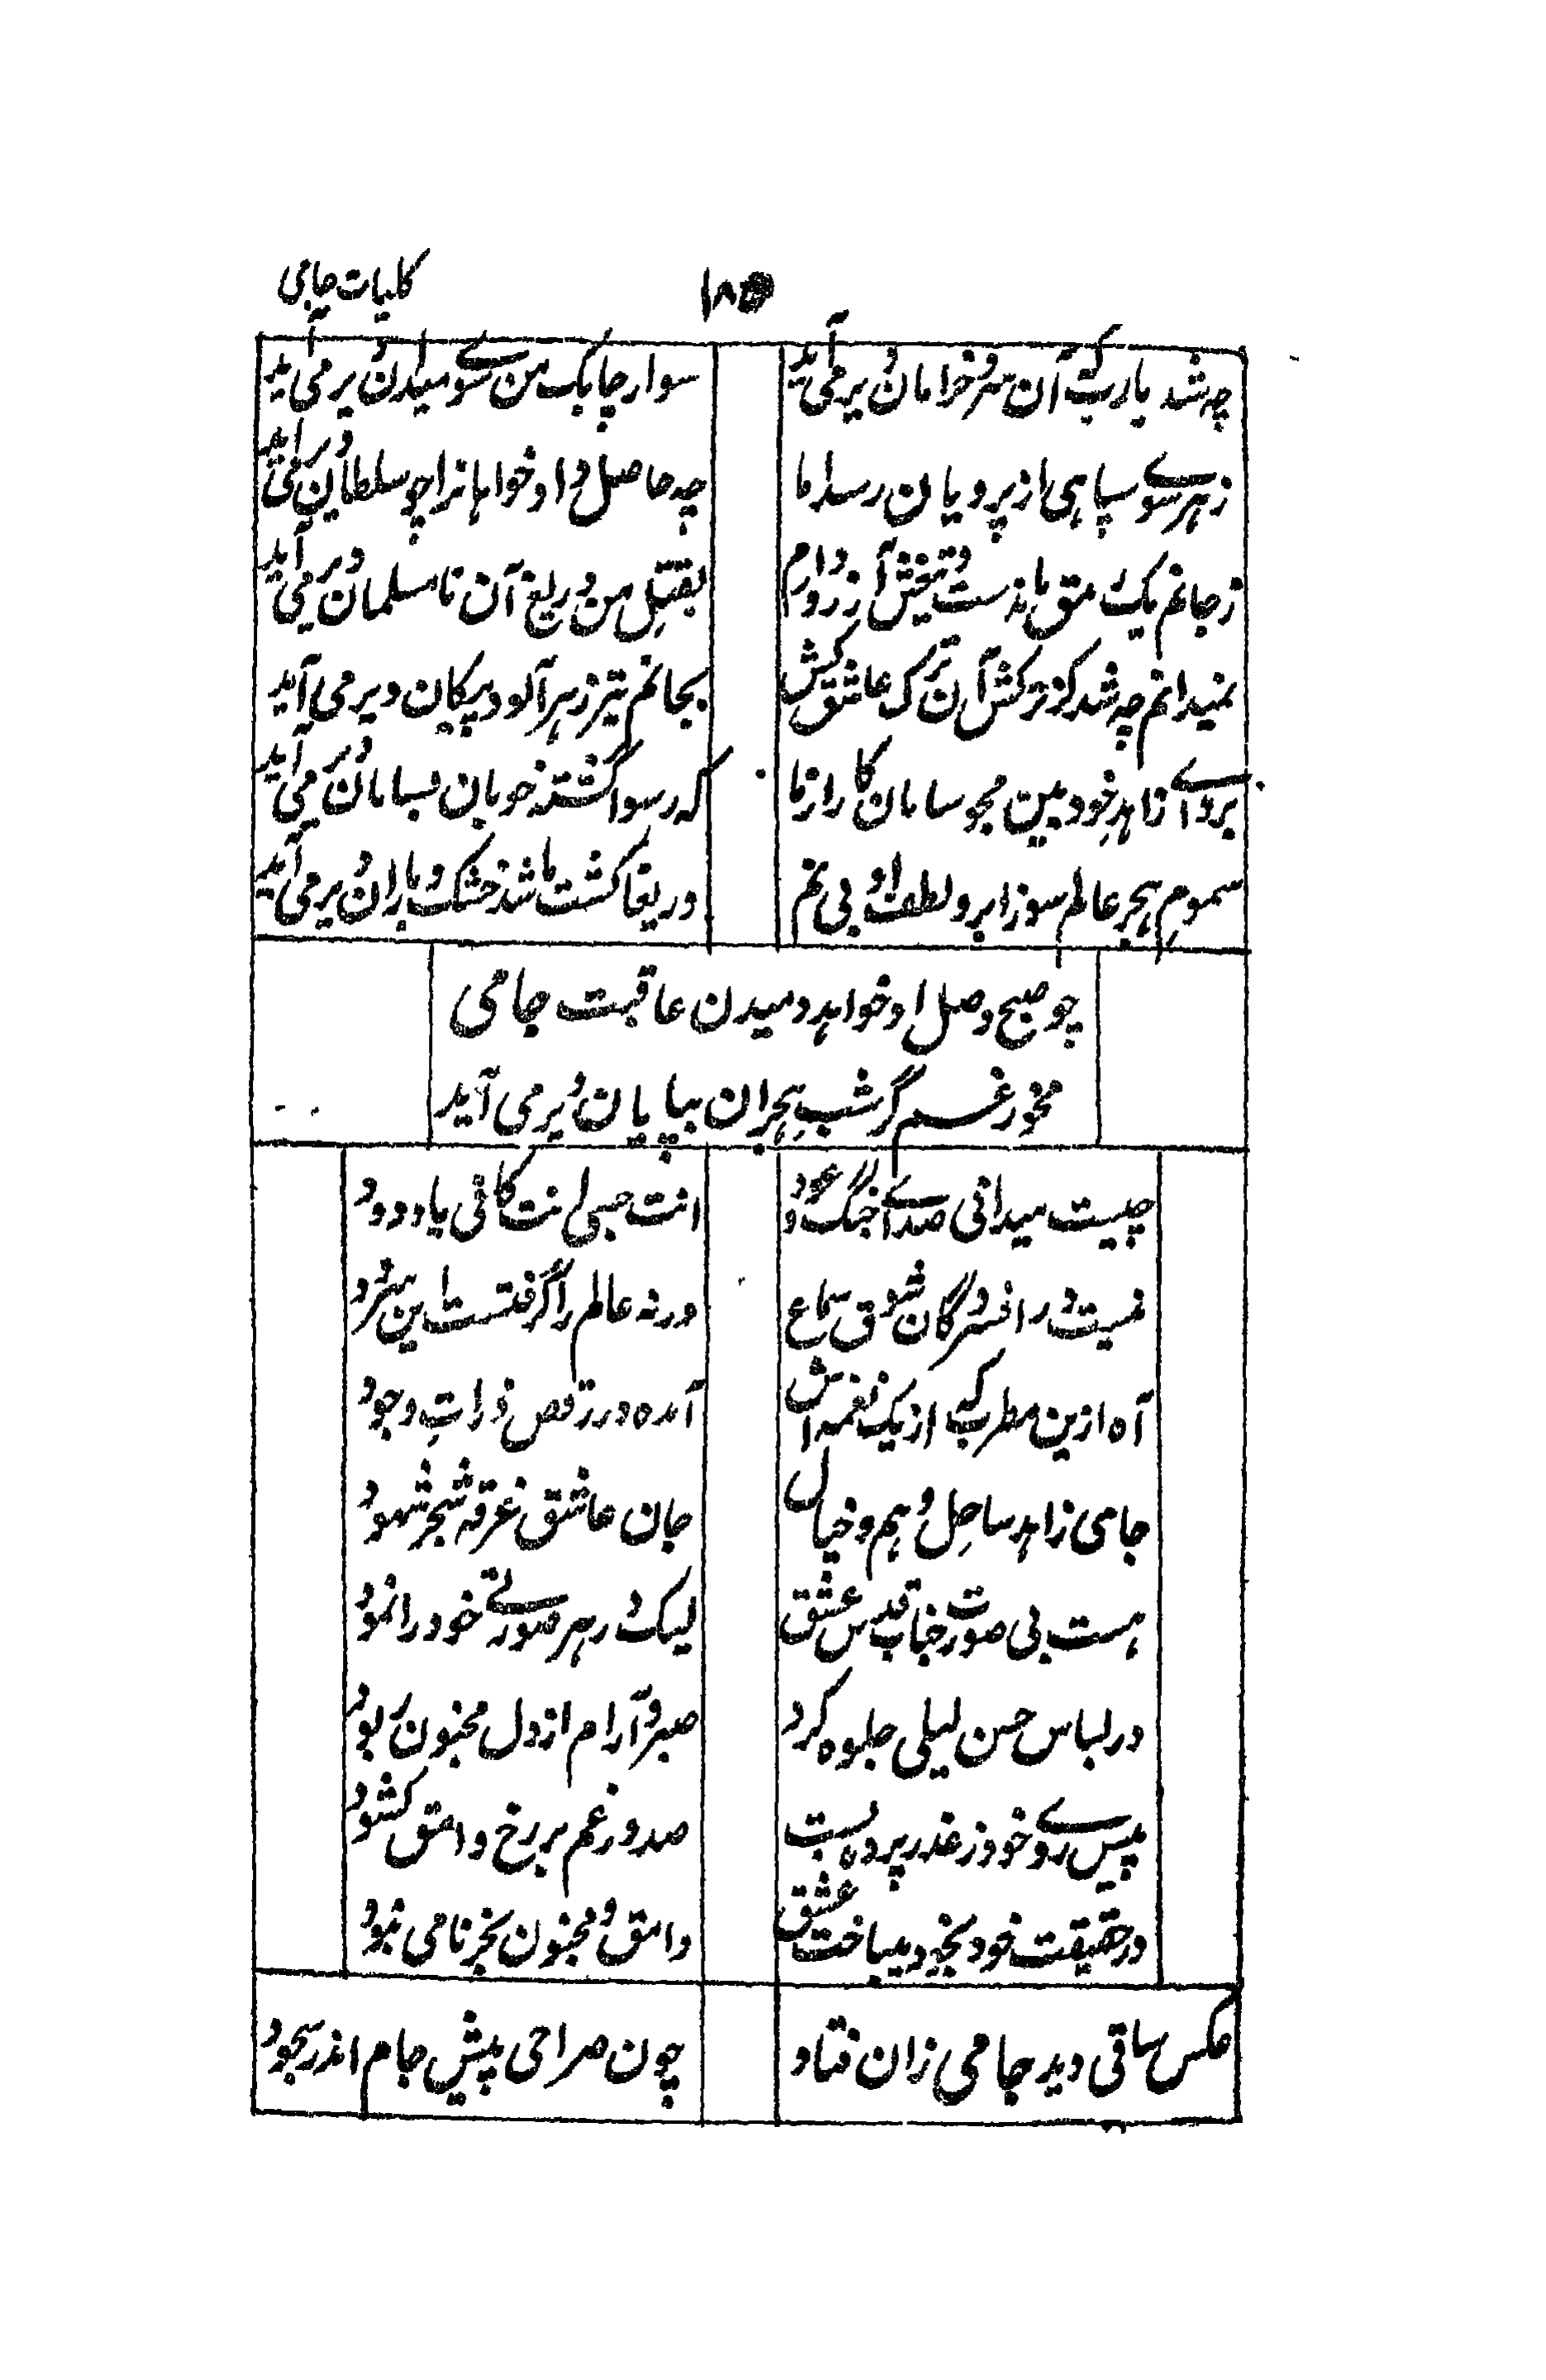 کلیات جامی
۱۸۵
چه شد یارب که آن سرو خرامان دیر می آید
سوار چابک من سوے میدان دیر می آید
ز هر سوے سپاهی از پرویان رسد اما
چه حاصل داد خواهانرا چو سلطان دیر می آید
ز جانم یک رمق ماندست و تیغش آرزو دارم
بقتل من دریغ آن نامسلمان دیر می آید
نمیدانم چه شد کز ترکش آن ترک عاشق کش
بجانم تیر زهر آلود پیکان دیر می آید
برو اے زاهد خود بین مجو سامان کار از ما
که رسوا گشته خوبان بسامان دیر می آید
سموم هجر عالم سوز ابر و لطف او بی نم
دریغا کشت ما شد خشک و باران دیر می آید
چو صبح وصل او خواهد دمیدن عاقبت جامی
مخور غم گر شب هجران بپایان دیر می آید
چیست میدانی صداے چنگ و عود
انت حسبی انت کافی یا ودود
نیست در افسردگان شوق سماع
ورنه عالم را گرفتست این سرود
آه ازین مطرب که از یک نغمه اش
آمده در رقص ذرات وجود
جامی زاهد ساحل وهم و خیال
جان عاشق غرقه شجر شهود
هست بی صورت جناب قدس عشق
لیک در هر صورتے خود را نمود
در لباس حسن لیلی جلوه کرد
صبر و آرام از دل مجنون ربود
پیس روے خود ز عذر پرده بست
صد در غم بر رخ وامق کشود
در حقیقت خود بخود میباخت عشق
وامق و مجنون بجز نامی نبود
عکس ساقی دید جامی زان فتاد
چون صراحی پیش جام اندر سجود